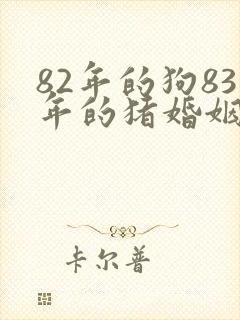 82年的狗83
年的猪婚姻
卡尔普